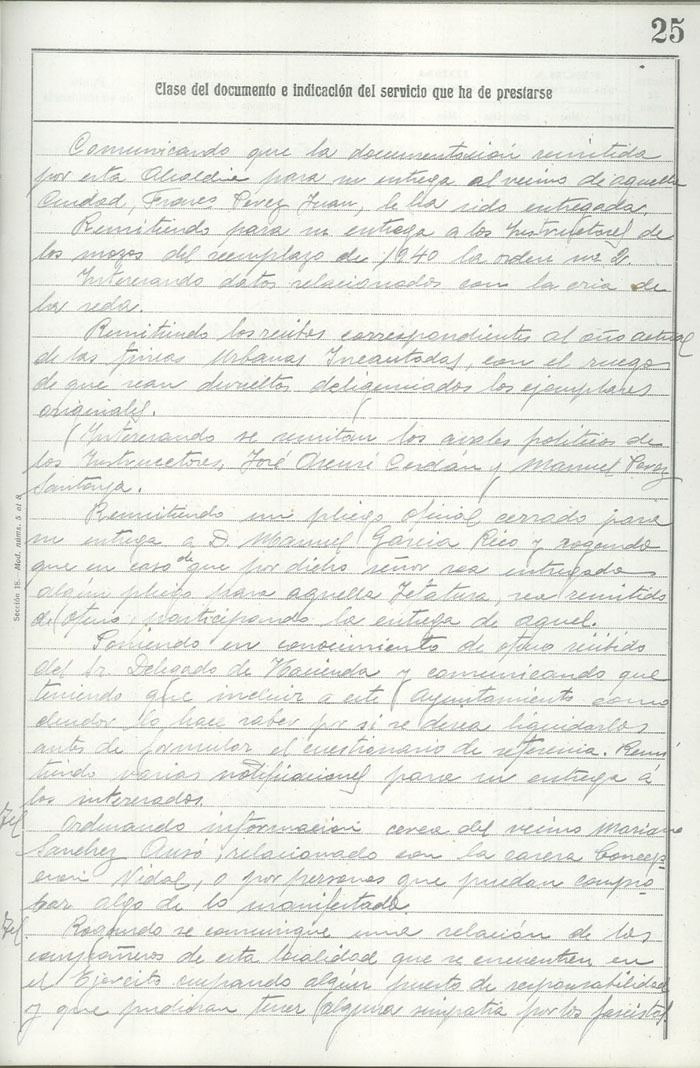 25
Clase del documento e indicación del servicio que ha de prestarse
Comunicando que la documentación remitida
por esta Alcaldia para su entrega al vecino de aquella
Ciudad, Frances Perez Juan, le ha sido entregada.
Remitiendo para su entrega a los Instructores de
los mozos del reemplazo de 1940 la orden nº 2.
Interesando datos relacionados con la cria de
la seda.
Remitiendo los recibos correspondientes al año actual
de las fincas Urbanas Incautadas, con el ruego
de que sean devueltos diligenciados los ejemplares
originales.
Interesando se remitan los avales politicos de
los Instructores, José Cerdán y Manuel Perez
Santonja.
Remitiendo un pliego oficial cerrado para
su entrega a D. Manuel García Rico y rogando
que en caso de que por dicho señor sea entregado
algún pliego para aquella Jefatura, sea remitido
de oficio, participando la entrega de aquel.
Poniendo en conocimiento de oficio recibido
del Sr. Delegado de Hacienda y comunicando que
teniendo que incluir a este Ayuntamiento como
deudor lo hace saber por si se desea liquidarlos
antes de formular el cuestionario de referencia. Remi
tiendo varias notificaciones para su entrega á
los interesados.
Tel Ordenando información cerca del vecino Mariano
Sanchez Ausó, relacionado con la casera Concep-
cion Vidal, o por personas que puedan compro
bar algo de lo manifestado.
Tel Rogando se comunique una relación de los
compañeros de esta localidad que se encuentren en
el Ejercito ocupando algún puesto de responsabilidad
y que pudieran tener alguna simpatía por los fascistas.
Sección 18.-Mod. núms. 5 al 8